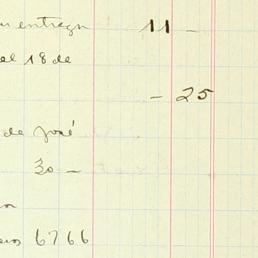 su entrega 11 —
el 18 de
— 25
de José
30 —
6766